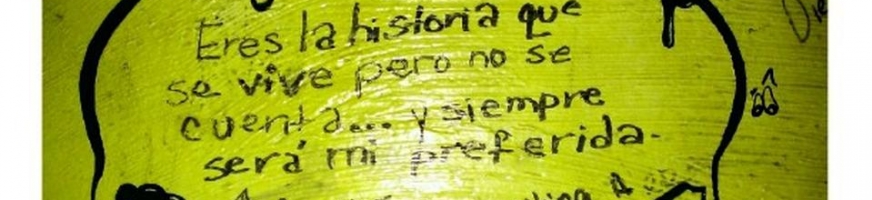 Eres la historia que
se vive pero no se
cuenta... y siempre
será mi preferida.